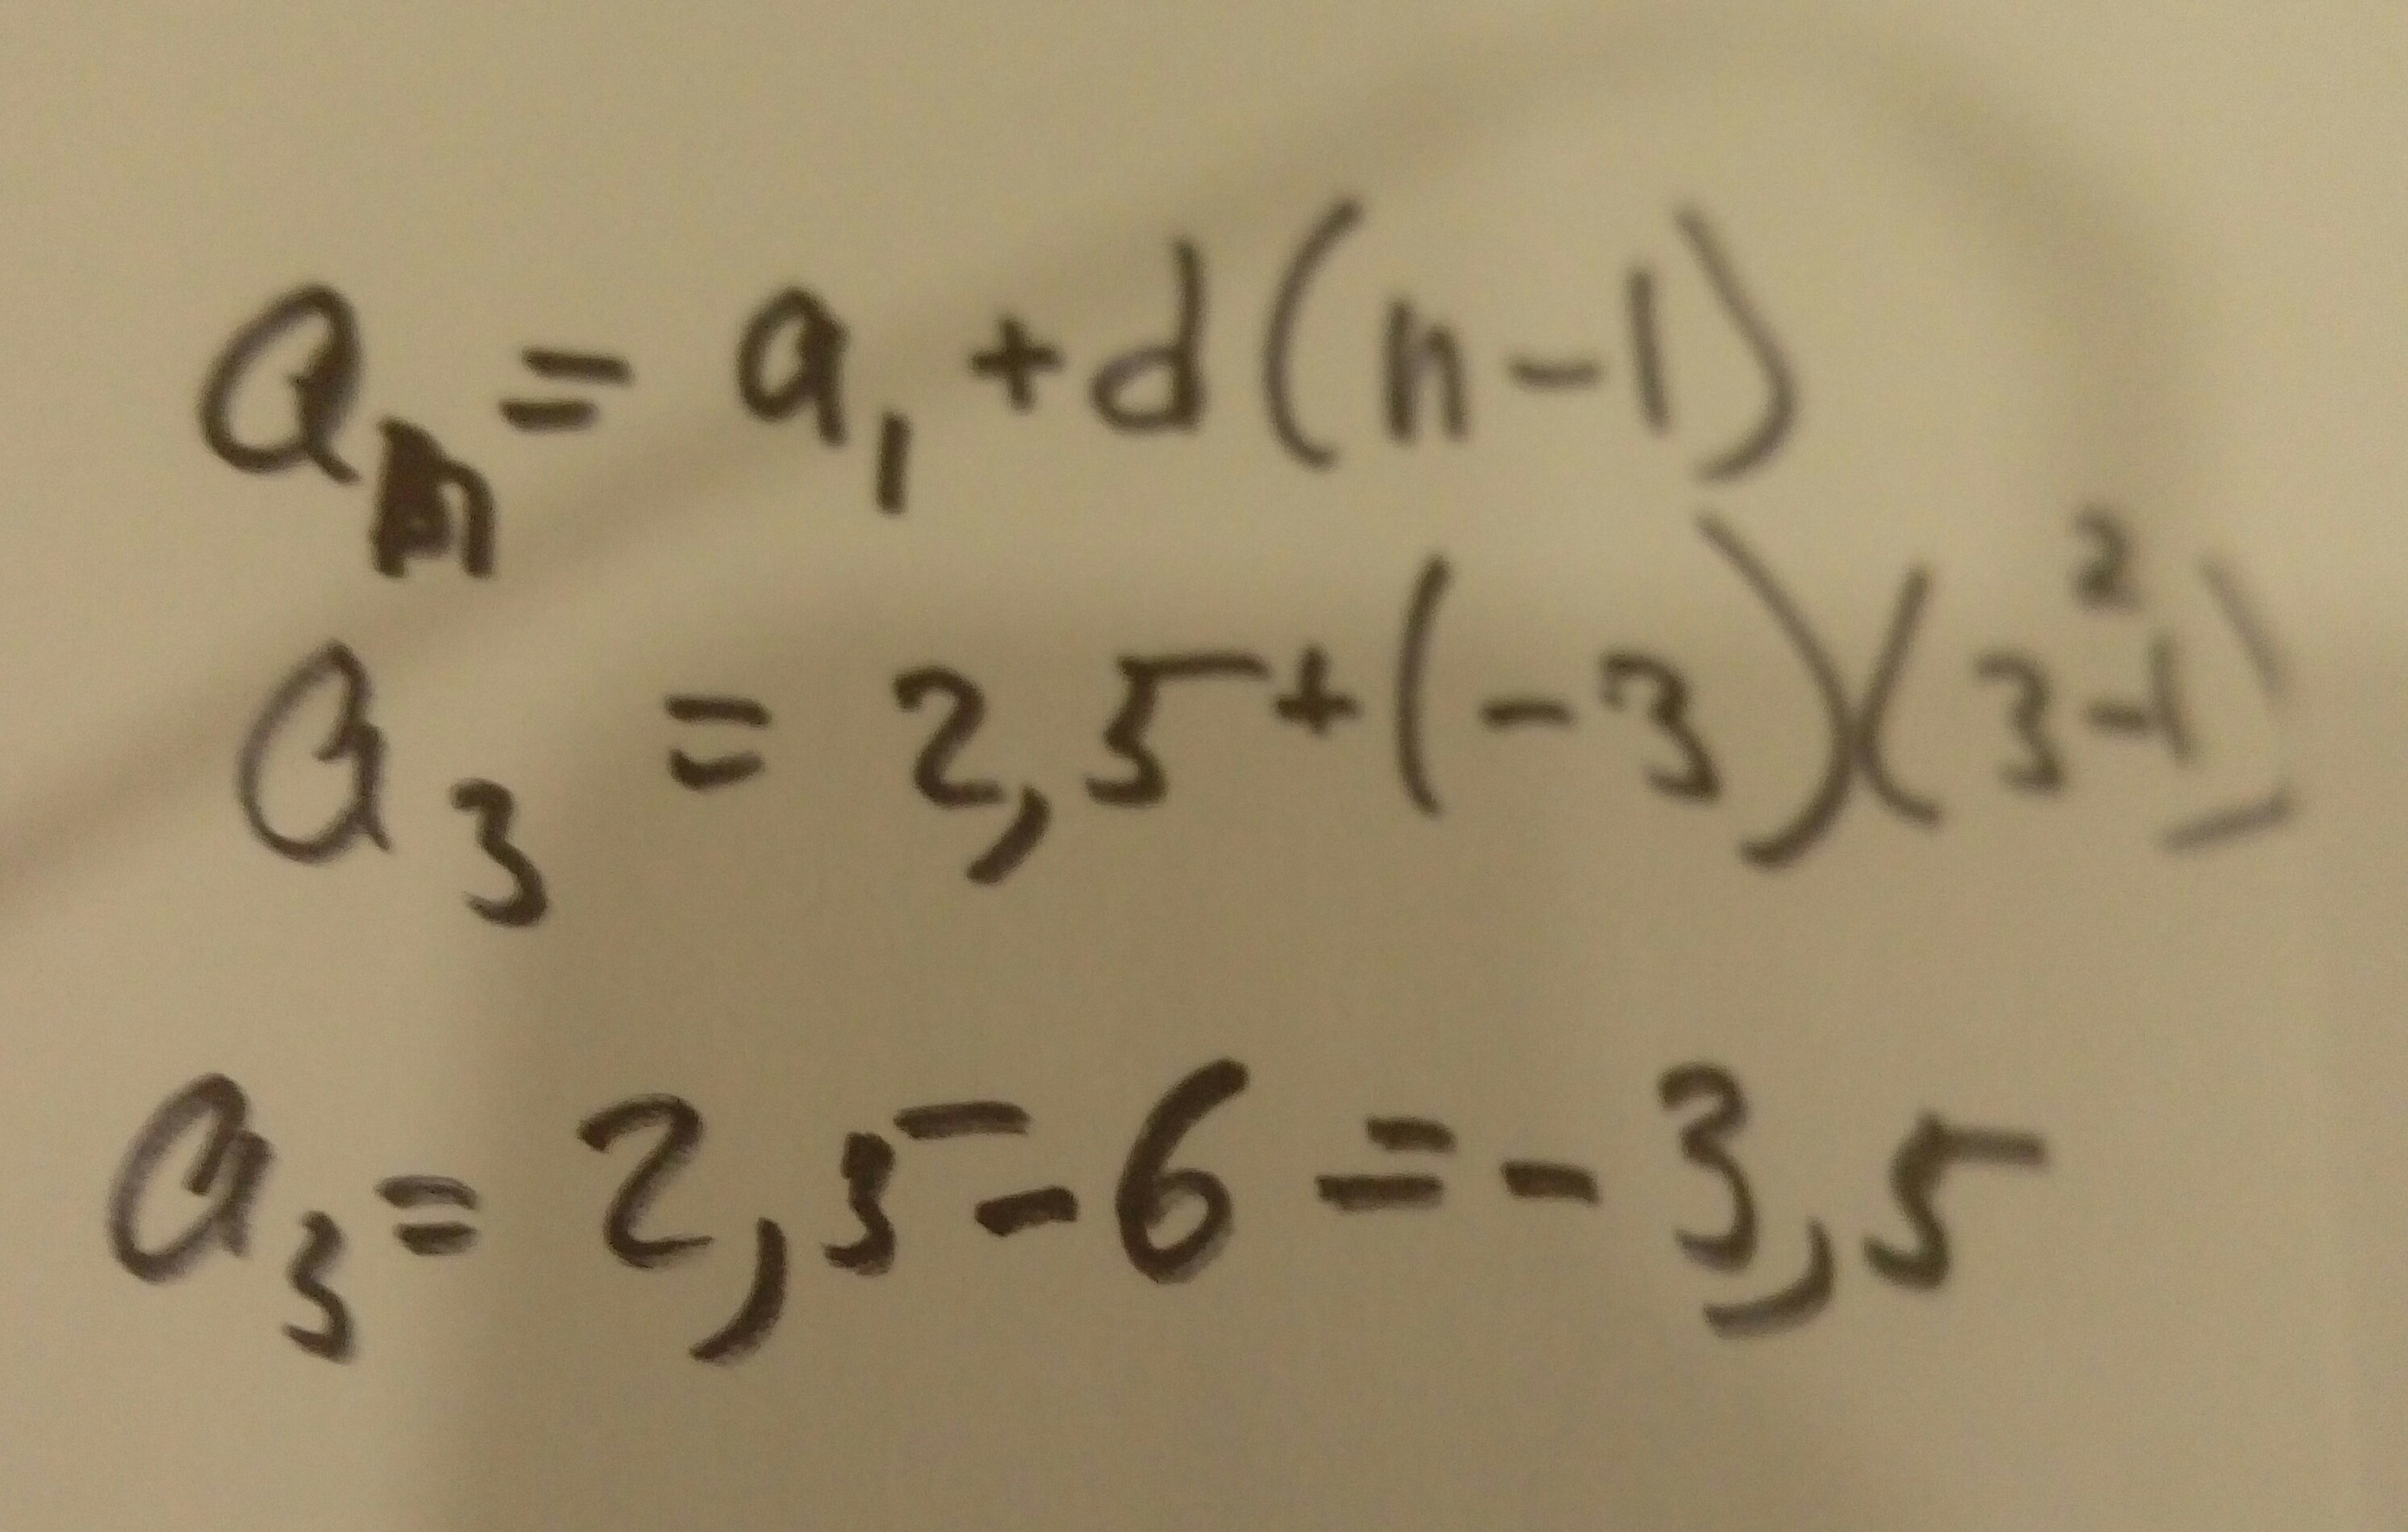 aₙ = a₁ + d(n-1)
a₃ = 2,5 + (-3)(3-1) 2
a₃ = 2,5 - 6 = -3,5